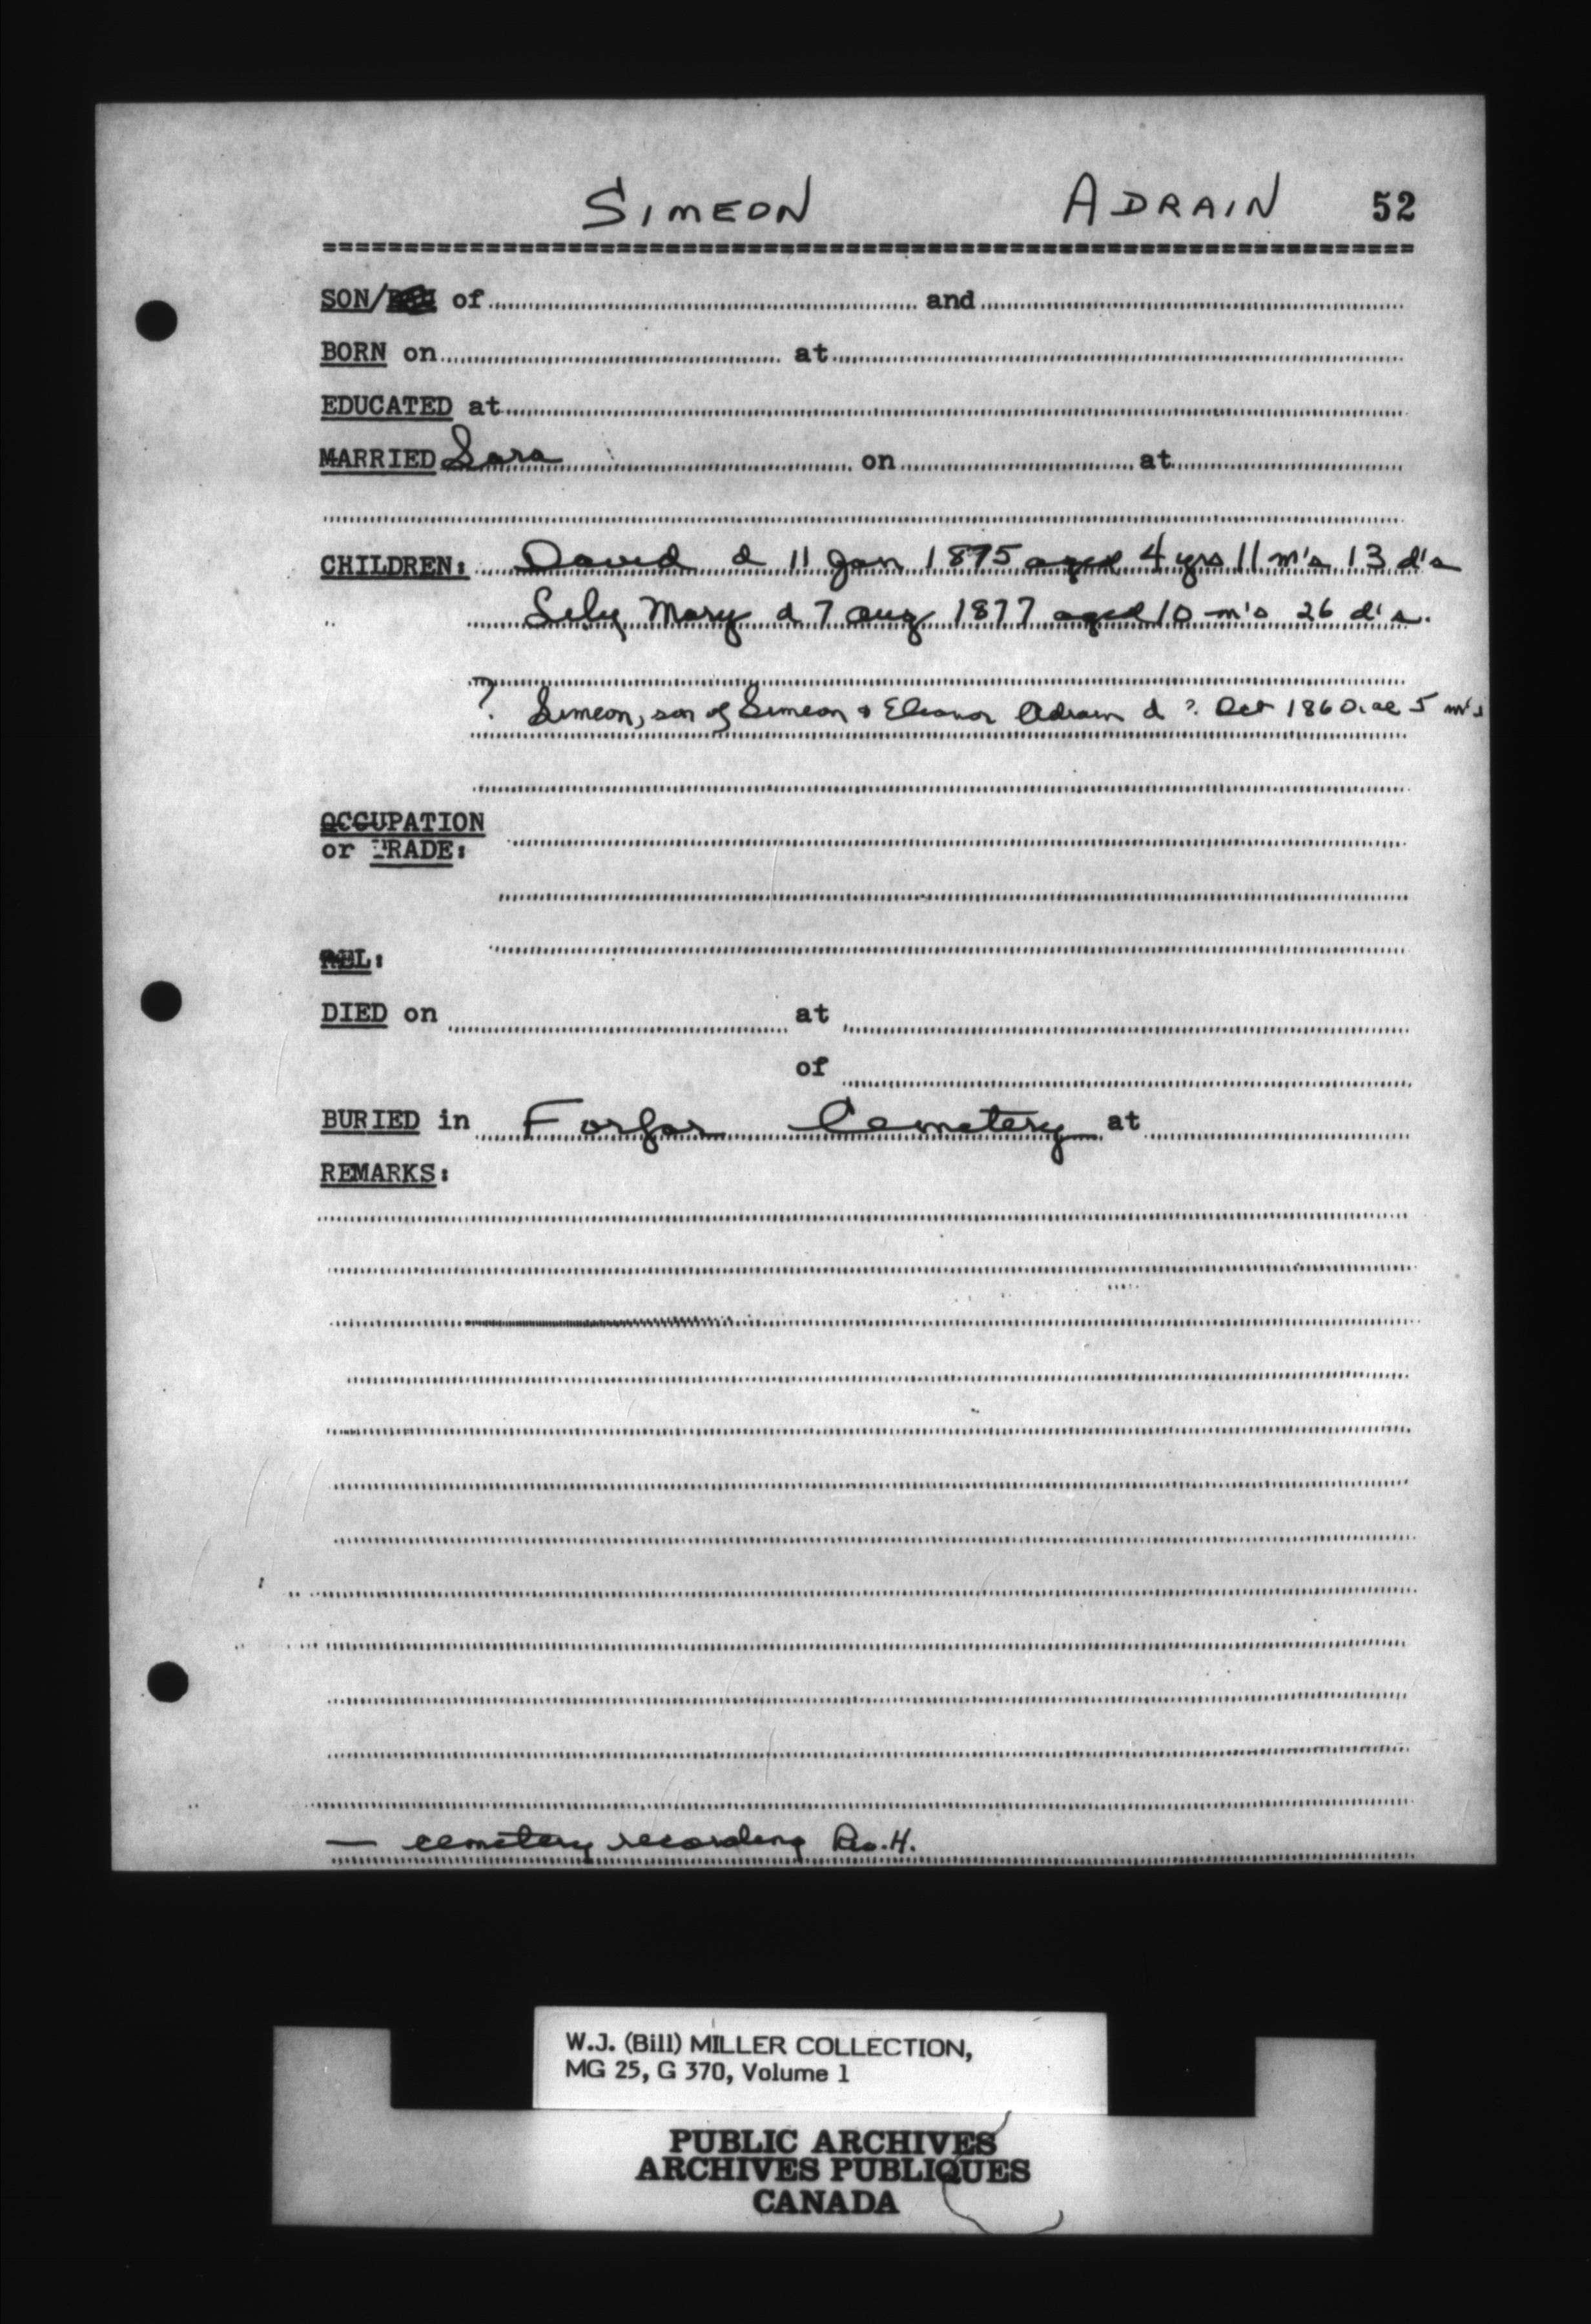 SIMEON ADRAIN 52
SON/ of and
BORN on at
EDUCATED at
MARRIED Sara on at
CHILDREN: David d 11 Jan 1875 aged 4 yrs 11 m's 13 d's
Lily Mary d 7 Aug 1877 aged 10 m's 26 d's.
? Simeon, son of Simeon & Eleanor Adrain d ? Oct 1860. ae 5 m's
OCCUPATION
or TRADE:
REL:
DIED on at
of
BURIED in Forfar Cemetery at
REMARKS:
— cemetery recording H.
W.J. (Bill) MILLER COLLECTION,
MG 25, G 370, Volume 1
PUBLIC ARCHIVES
ARCHIVES PUBLIQUES
CANADA